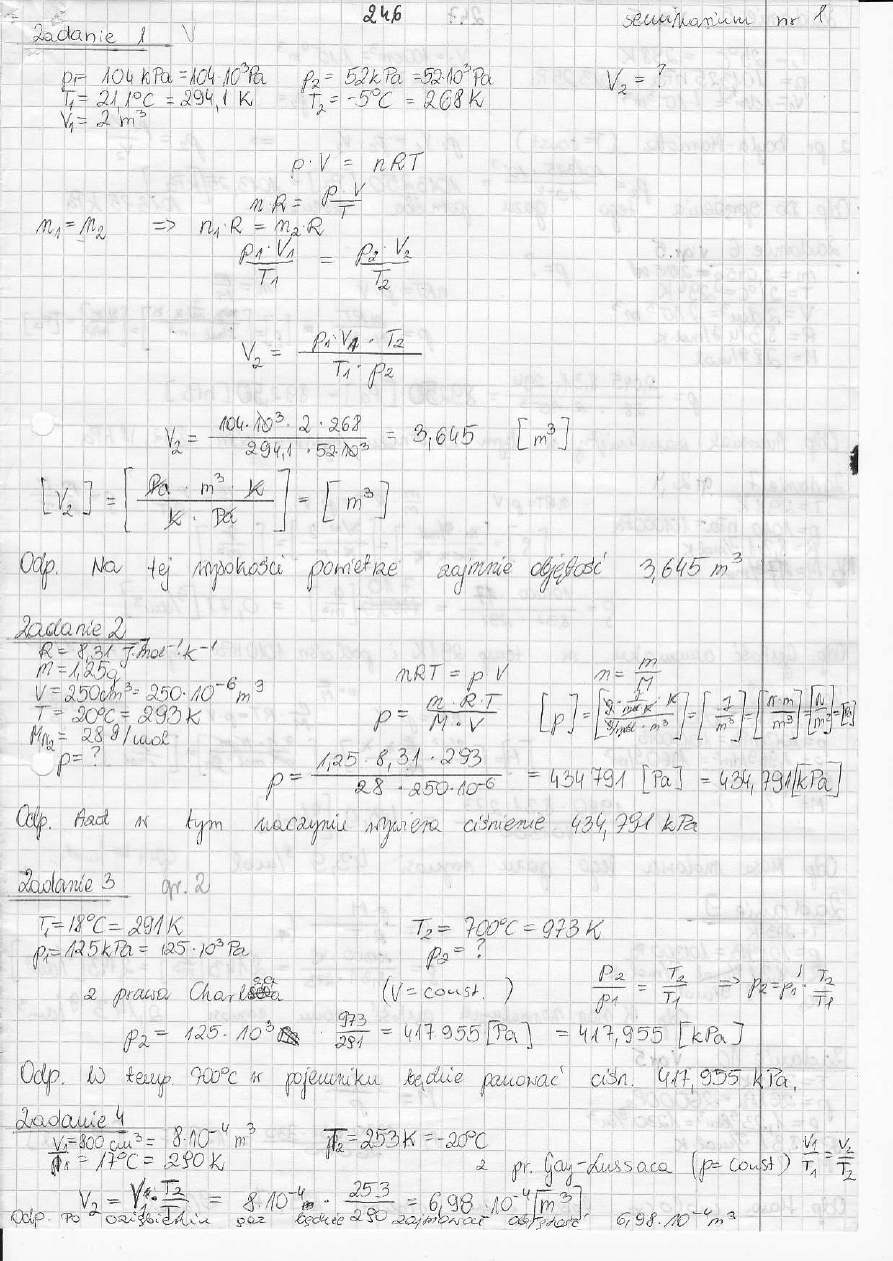 246
seminarium nr 1
Zadanie 1 V
p₁= 104 kPa = 104·10³Pa p₂ = 52kPa = 52·10³Pa V₂ = ?
T₁ = 21,1°C = 294,1 K T₂ = -5°C = 268 K
V₁ = 2 m³
p·V = nRT
nR = p·V/T
n₁ = n₂ => n₁·R = n₂·R
p₁·V₁/T₁ = p₂·V₂/T₂
V₂ = p₁·V₁·T₂ / T₁·p₂
V₂ = 104·10³·2·268 / 294,1·52·10³ = 3,645 [m³]
[V₂] = [Pa·m³·K / K·Pa] = [m³]
Odp. Na tej wysokości powietrze zajmnie objętość 3,645 m³
Zadanie 2
R = 8,31 J·mol⁻¹·K⁻¹
m = 1,25g nRT = p·V n = m/M
V = 250cm³ = 250·10⁻⁶ m³
T = 20°C = 293 K p = m·R·T / M·V [p] = [g·J/mol·K·K / g/mol·m³] = [J/m³] = [N·m/m³] = [N/m²] = [Pa]
M_N₂ = 28 g/mol
p = ?
p = 1,25·8,31·293 / 28·250·10⁻⁶ = 434791 [Pa] = 434,791 [kPa]
Odp. Azot w tym naczyniu wywiera ciśnienie 434,791 kPa
Zadanie 3 gr. 2
T₁ = 18°C = 291 K T₂ = 700°C = 973 K
p₁ = 125kPa = 125·10³Pa p₂ = ?
z prawa Charlesa (V = const.) p₂/p₁ = T₂/T₁ => p₂ = p₁·T₂/T₁
p₂ = 125·10³ · 973/291 = 417955 [Pa] = 417,955 [kPa]
Odp. W temp. 700°C w pojemniku będzie panować ciśn. 417,955 kPa.
Zadanie 4
V₁ = 800 cm³ = 8·10⁻⁴ m³ T₂ = 253K = -20°C
T₁ = 17°C = 290 K z pr. Gay-Lussaca (p = const) V₁/T₁ = V₂/T₂
V₂ = V₁·T₂/T₁ = 8·10⁻⁴ · 253/290 = 6,98·10⁻⁴ [m³]
Odp. Po oziębieniu gaz będzie zajmował objętość 6,98·10⁻⁴ m³